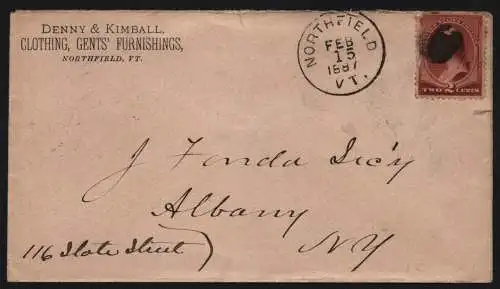 DENNY & KIMBALL,
CLOTHING, GENTS' FURNISHINGS,
NORTHFIELD, VT.
NORTHFIELD
FEB
15
1887
VT.
TWO 2 CENTS
J Fonda Sec'y
Albany
NY
116 State Street